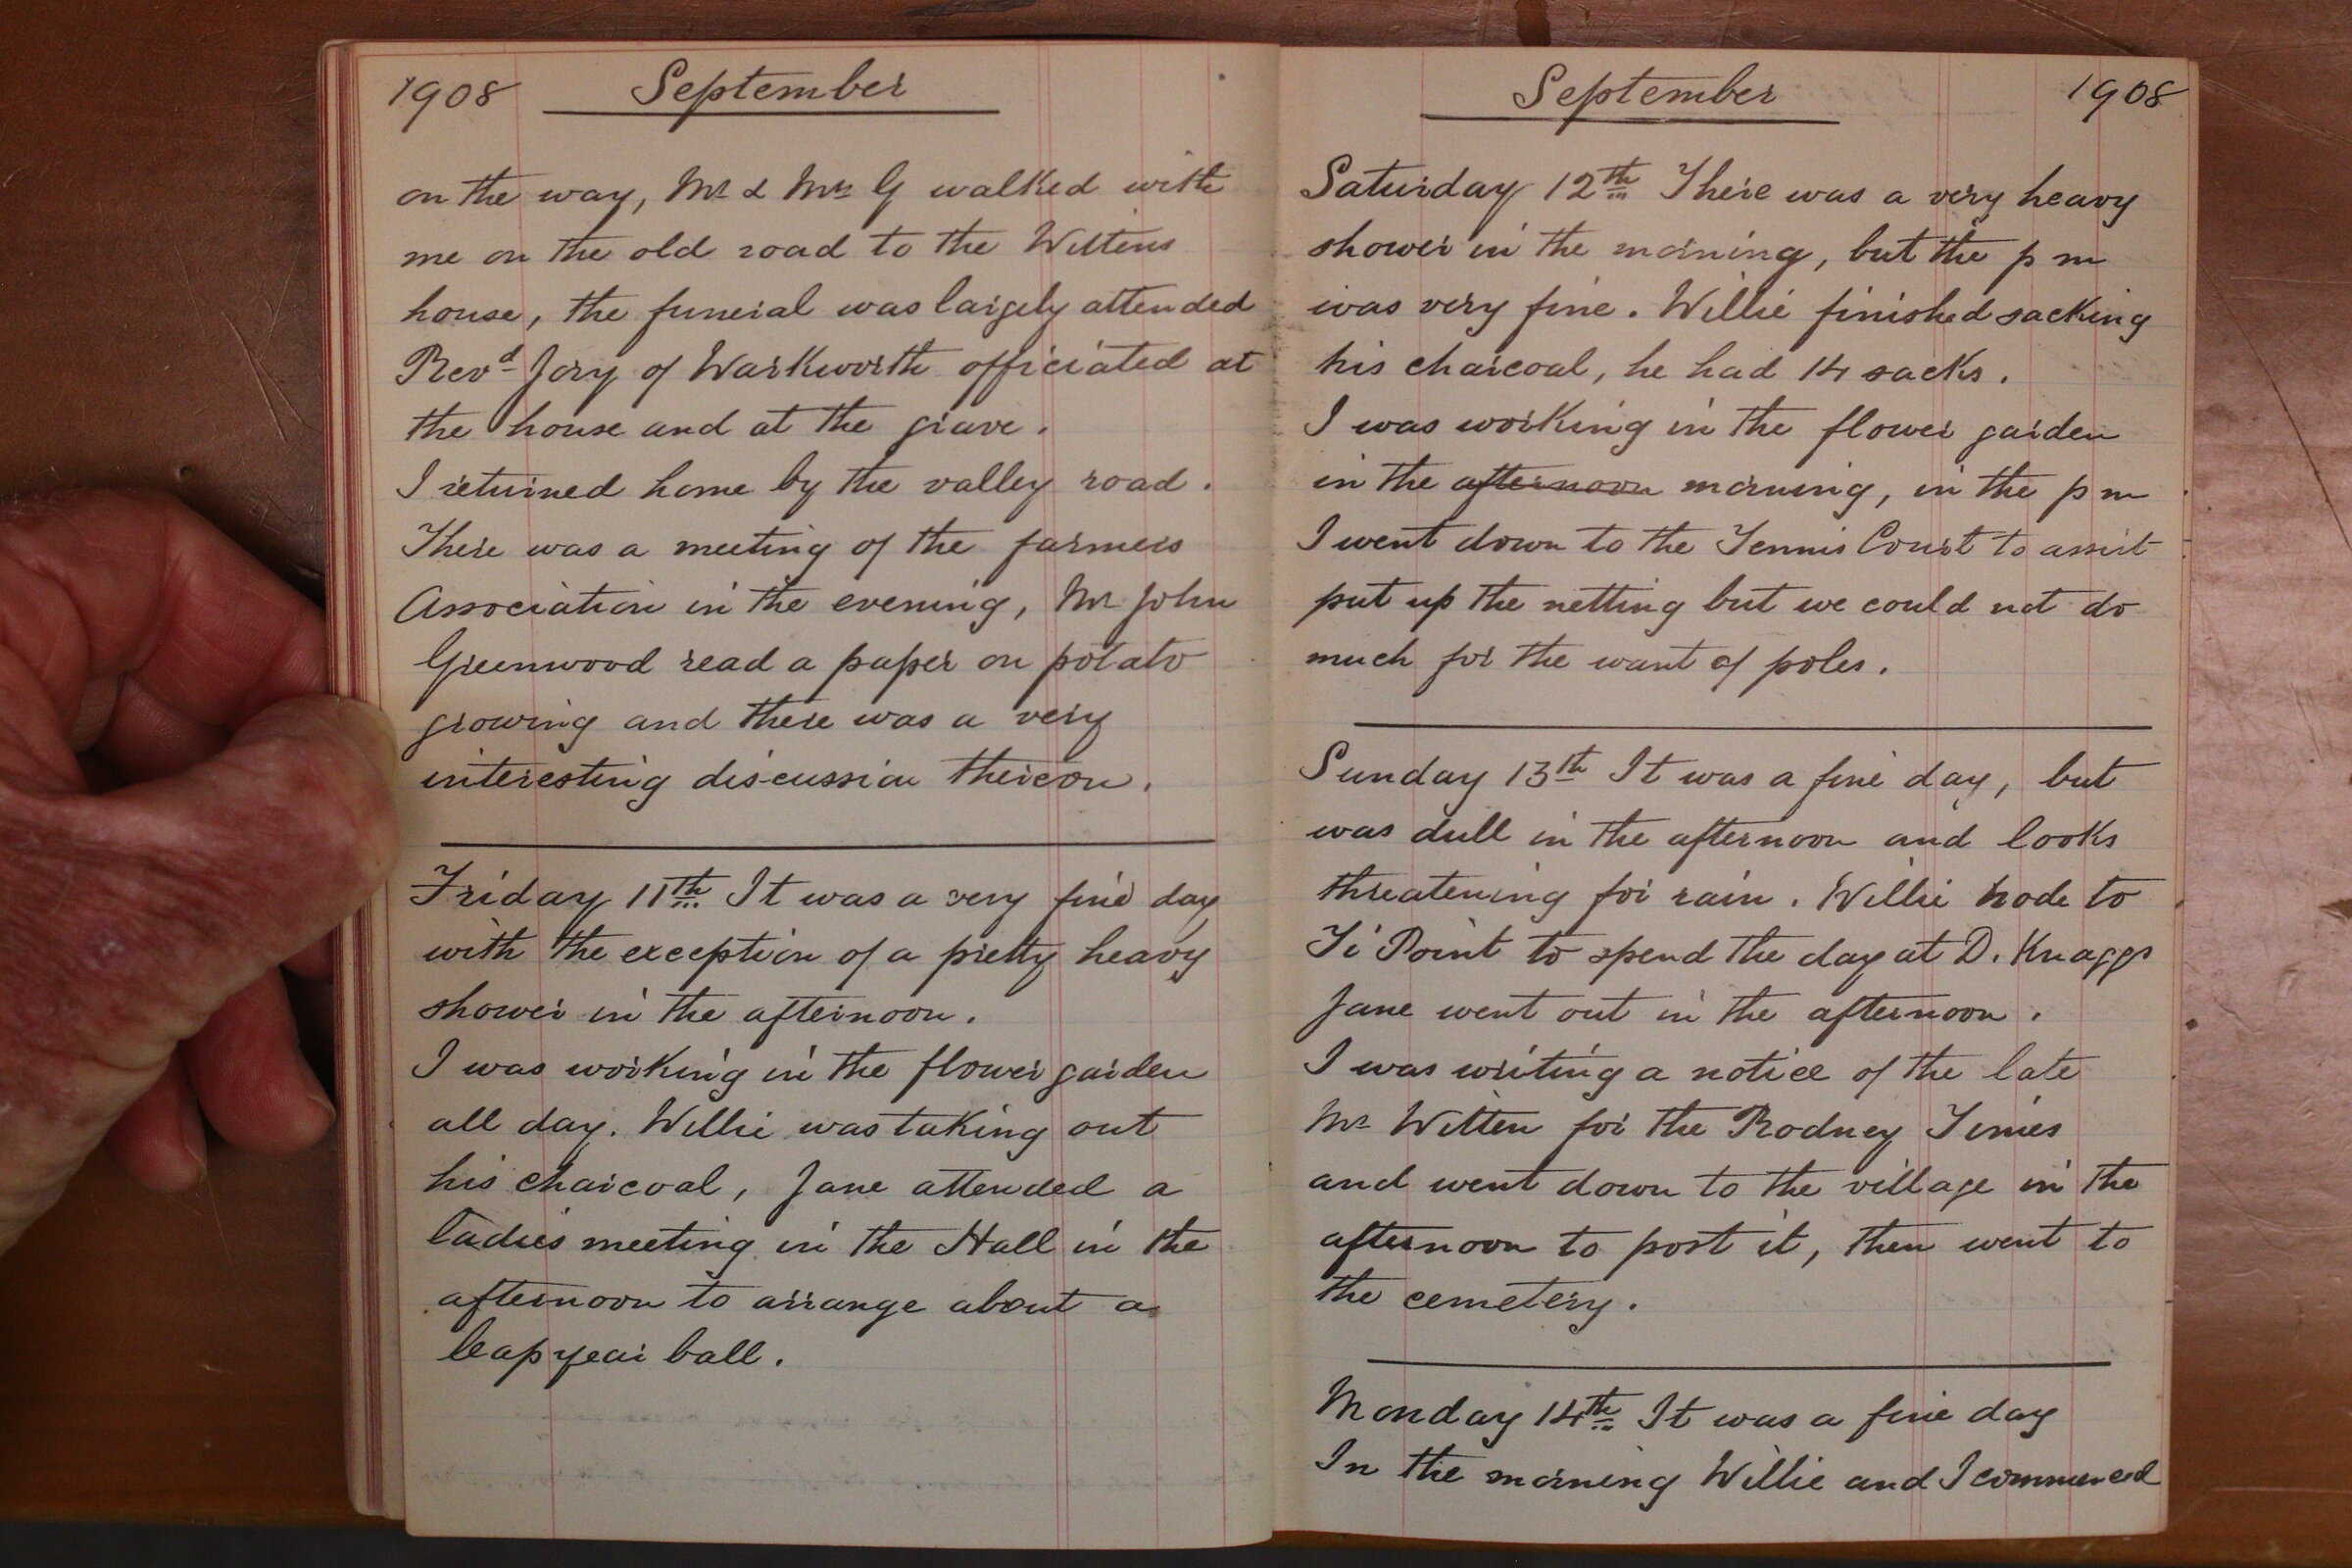 1908 September
on the way, Mr & Mrs G walked with
me on the old road to the Wittens
house, the funeral was largely attended
Revd Jory of Warkworth officiated at
the house and at the grave.
I returned home by the valley road.
There was a meeting of the farmers
Association in the evening, Mr John
Greenwood read a paper on potato
growing and there was a very
interesting discussion thereon.
Friday 11th It was a very fine day
with the exception of a pretty heavy
shower in the afternoon.
I was working in the flower garden
all day. Willie was taking out
his charcoal, Jane attended a
ladies meeting in the Hall in the
afternoon to arrange about a
leap year ball.
September 1908
Saturday 12th There was a very heavy
shower in the morning, but the p m
was very fine. Willie finished sacking
his charcoal, he had 14 sacks.
I was working in the flower garden
in the afternoon morning, in the p m
I went down to the Tennis Court to assist
put up the netting but we could not do
much for the want of poles.
Sunday 13th It was a fine day, but
was dull in the afternoon and looks
threatening for rain. Willie rode to
Ti Point to spend the day at D. Knaggs
Jane went out in the afternoon.
I was writing a notice of the late
Mr Witten for the Rodney Times
and went down to the village in the
afternoon to post it, then went to
the cemetery.
Monday 14th It was a fine day
In the morning Willie and I commenced